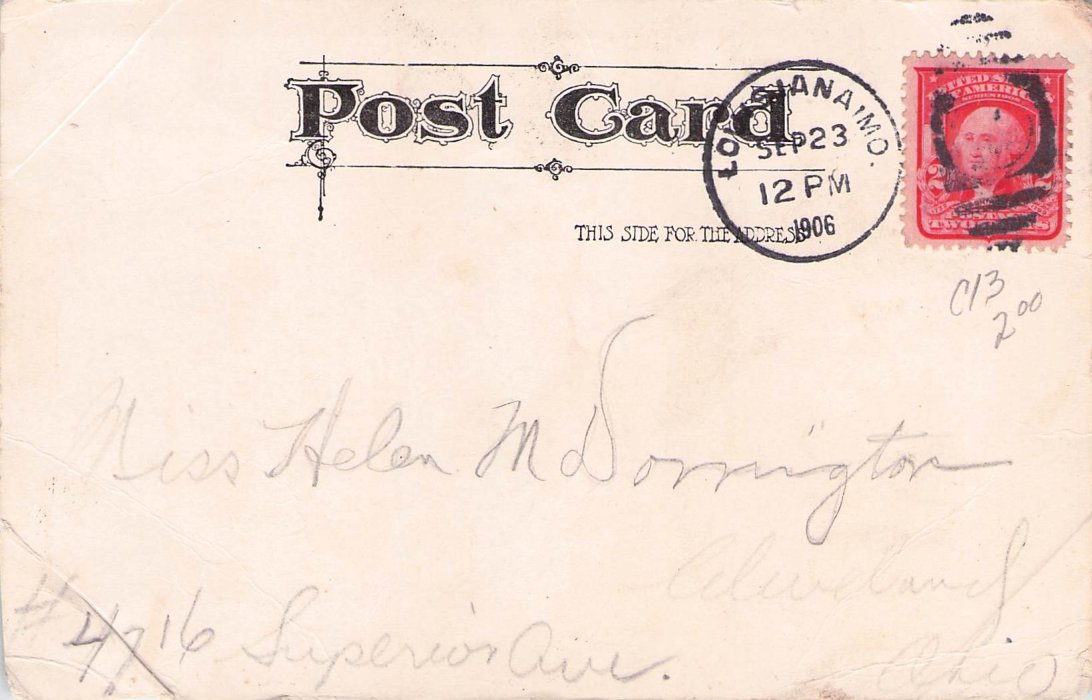 Post Card
LOUISIANA, MO.
SEP 23
12 PM
1906
UNITED STATES
OF AMERICA
SERIES 1902
2
2
TWO CENTS
THIS SIDE FOR THE ADDRESS
C13
2 00
Miss Helen M Dorrington
Cleveland
# 4716 Superior Ave.
Ohio